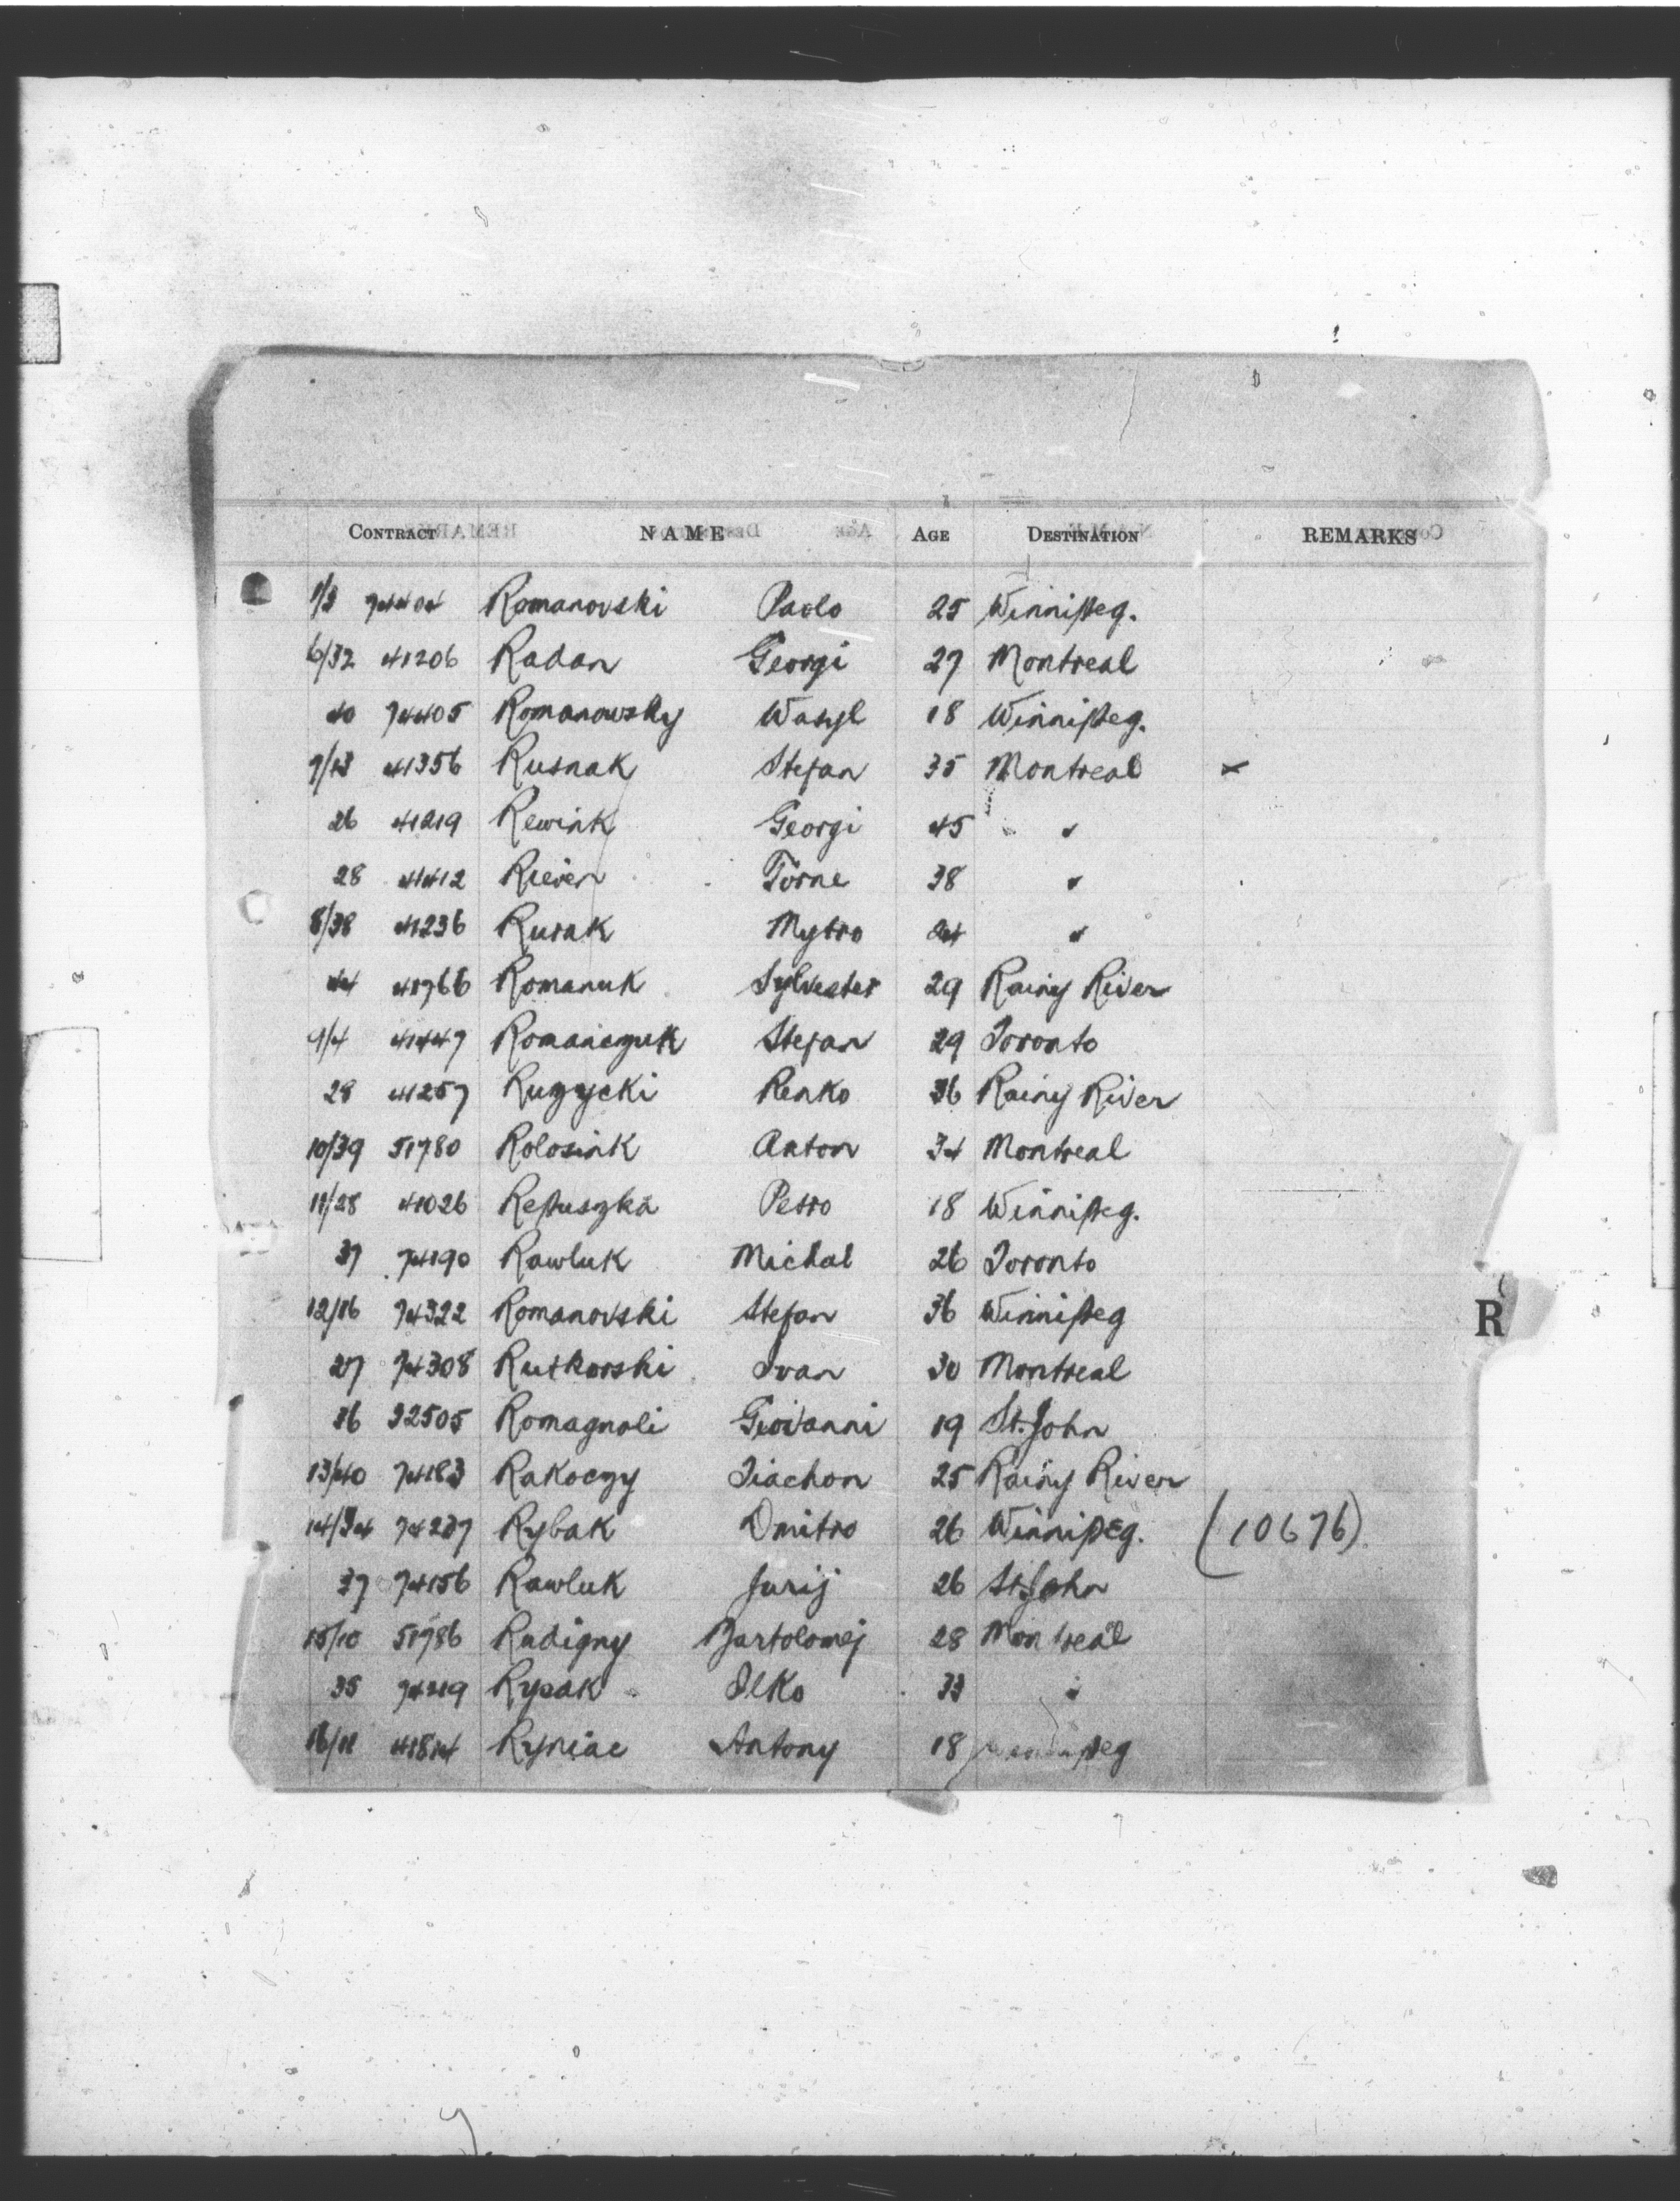 CONTRACT NAME AGE DESTINATION REMARKS
1/3 74404 Romanovski Paolo 25 Winnipeg.
6/32 41206 Radan Georgi 27 Montreal
40 74405 Romanowsky Wasyl 18 Winnipeg.
7/13 41356 Rusnak Stefan 35 Montreal x
26 41219 Rewink Georgi 45 "
28 41412 Rieven Törne 38 "
8/38 41236 Rusak Mytro 24 "
44 41766 Romanuk Sylvester 29 Rainy River
9/4 41447 Romanczuk Stefan 29 Toronto
28 41257 Ruzycki Renko 36 Rainy River
10/39 51780 Rolosink Anton 34 Montreal
11/28 41026 Repuszka Petro 18 Winnipeg.
37 74190 Rawluk Michal 26 Toronto
12/16 74322 Romanovski Stefan 36 Winnipeg
27 74308 Rutkorski Ivan 30 Montreal
36 32505 Romagnoli Giovanni 19 St. John
13/40 74183 Rakoczy Tiachon 25 Rainy River
R
14/34 74237 Rybak Dmitro 26 Winnipeg. (10676)
37 74156 Rawluk Jurij 26 St. John
15/10 51786 Radigny Bartolomej 28 Montreal
35 74219 Rysak Ilko 33 "
16/11 41814 Ryniac Antony 18 Winnipeg